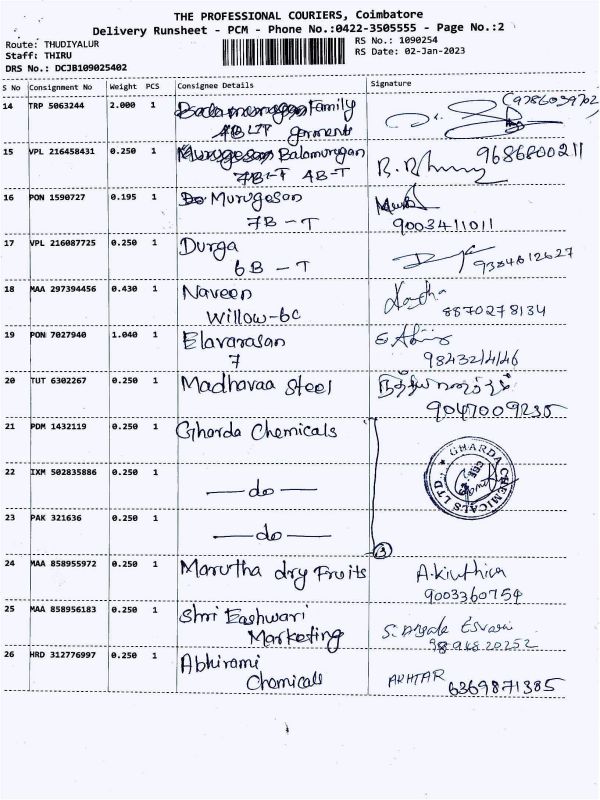 THE PROFESSIONAL COURIERS, Coimbatore
Delivery Runsheet - PCM - Phone No.:0422-3505555 - Page No.:2
Route: THUDIYALUR
RS No.: 1090254
Staff: THIRU
RS Date: 02-Jan-2023
DRS No.: DCJB109025402
S No Consignment No Weight PCS Consignee Details Signature
14 TRP 5063244 2.000 1 Family
garments
15 VPL 216458431 0.250 1 Balamurugan 9686800211
4B-T
16 PON 1590727 0.195 1 Murugesan
7B - T 9003411011
17 VPL 216087725 0.250 1 Durga
6B - T 9384612627
18 MAA 297394456 0.430 1 Naveen
Willow-6c 8870278134
19 PON 7027940 1.040 1 Elavarasan
7 9843214146
20 TUT 6302267 0.250 1 Madhavaa Steel
9047009235
21 PDM 1432119 0.250 1 Gharda Chemicals
GHARDA CHEMICALS LTD
22 IXM 502835886 0.250 1 — do —
23 PAK 321636 0.250 1 — do —
3
24 MAA 858955972 0.250 1 Marutha dry Fruits A.kiruthica
9003360754
25 MAA 858956183 0.250 1 Shri Eashwari
Marketing
9894820252
26 HRD 312776997 0.250 1 Abhirami
Chemicals AKHTAR 6369871385